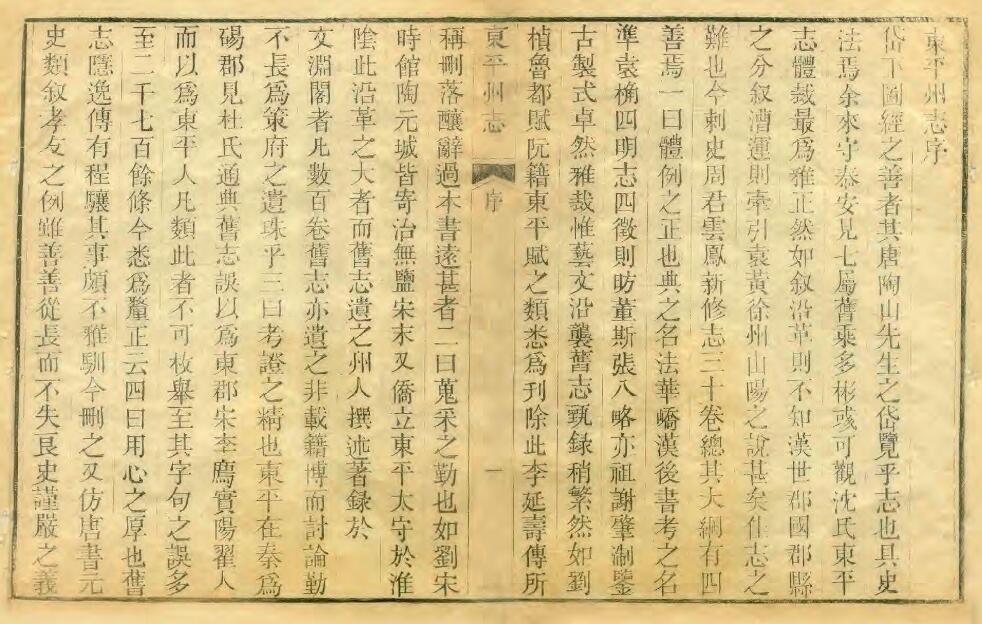 東平州志序
岱下圖經之善者其唐陶山先生之岱覽乎志也具史
法焉余來守泰安見七屬舊乘多彬彧可觀沈氏東平
志體裁最爲雅正然如叙沿革則不知漢世郡國郡縣
之分叙漕運則牽引袁黃徐州山陽之說甚矣佳志之
難也今刺史周君雲鳳新修志三十卷總其大綱有四
善焉一曰體例之正也典之名法華嶠漢後書考之名
準袁桷四明志四徵則昉董斯張八略亦祖謝肇淛鑒
古製式卓然雅裁惟藝文沿襲舊志甄録稍繁然如劉
楨魯都賦阮籍東平賦之類悉爲刊除此李延壽傳所
東平州志 序 一
稱刪落釀辭過本書遠甚者二曰蒐采之勤也如劉宋
時館陶元城皆寄治無鹽宋末又僑立東平太守於淮
陰此沿革之大者而舊志遺之州人撰述著録於
文淵閣者凡數百卷舊志亦遺之非載籍博而討論勤
不長爲策府之遺珠乎三曰考證之精也東平在秦爲
碭郡見杜氏通典舊志誤以爲東郡宋李廌實陽翟人
而以爲東平人凡類此者不可枚舉至其字句之誤多
至二千七百餘條今悉爲釐正云四曰用心之厚也舊
志隱逸傳有程驤其事頗不雅馴今刪之又仿唐書元
史類叙孝友之例雖善善從長而不失良史謹嚴之義